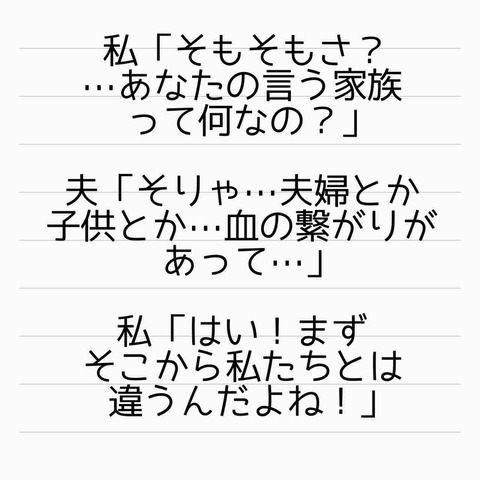 私「そもそもさ？
…あなたの言う家族
って何なの？」
夫「そりゃ…夫婦とか
子供とか…血の繋がりが
あって…」
私「はい！まず
そこから私たちとは
違うんだよね！」